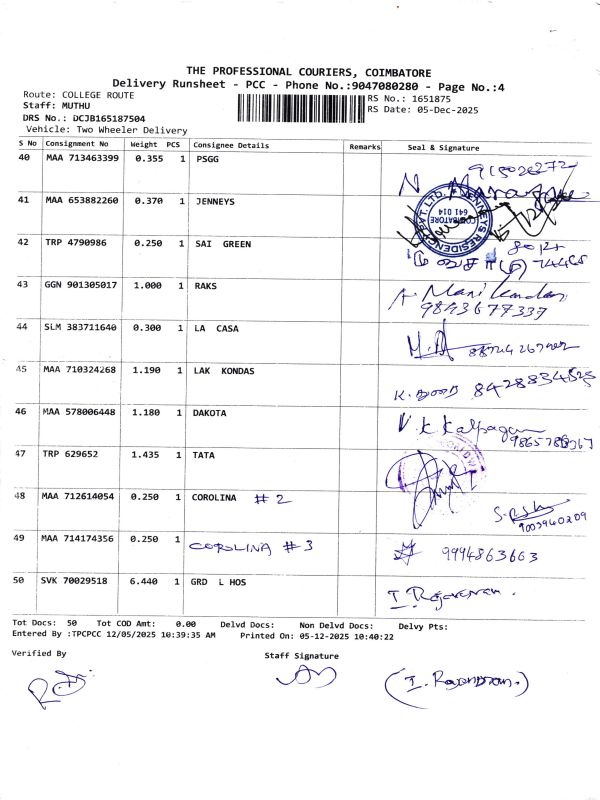 THE PROFESSIONAL COURIERS, COIMBATORE
Delivery Runsheet - PCC - Phone No.:9047080280 - Page No.:4
Route: COLLEGE ROUTE
RS No.: 1651875
Staff: MUTHU
RS Date: 05-Dec-2025
DRS No.: DCJB165187504
Vehicle: Two Wheeler Delivery
S No Consignment No Weight PCS Consignee Details Remarks Seal & Signature
40 MAA 713463399 0.355 1 PSGG
41 MAA 653882260 0.370 1 JENNEYS
JENNEYS RESIDENCY
COIMBATORE
641 014
42 TRP 4790986 0.250 1 SAI GREEN
43 GGN 901305017 1.000 1 RAKS
A Manikandan
9843677337
44 SLM 383711640 0.300 1 LA CASA
45 MAA 710324268 1.190 1 LAK KONDAS
46 MAA 578006448 1.180 1 DAKOTA
V.K Kalpagam
47 TRP 629652 1.435 1 TATA
48 MAA 712614054 0.250 1 COROLINA # 2
9003960209
49 MAA 714174356 0.250 1 COROLINA # 3 9994863663
50 SVK 70029518 6.440 1 GRD L HOS
Tot Docs: 50 Tot COD Amt: 0.00 Delvd Docs: Non Delvd Docs: Delvy Pts:
Entered By :TPCPCC 12/05/2025 10:39:35 AM Printed On: 05-12-2025 10:40:22
Verified By Staff Signature
(I. Rajendran.)